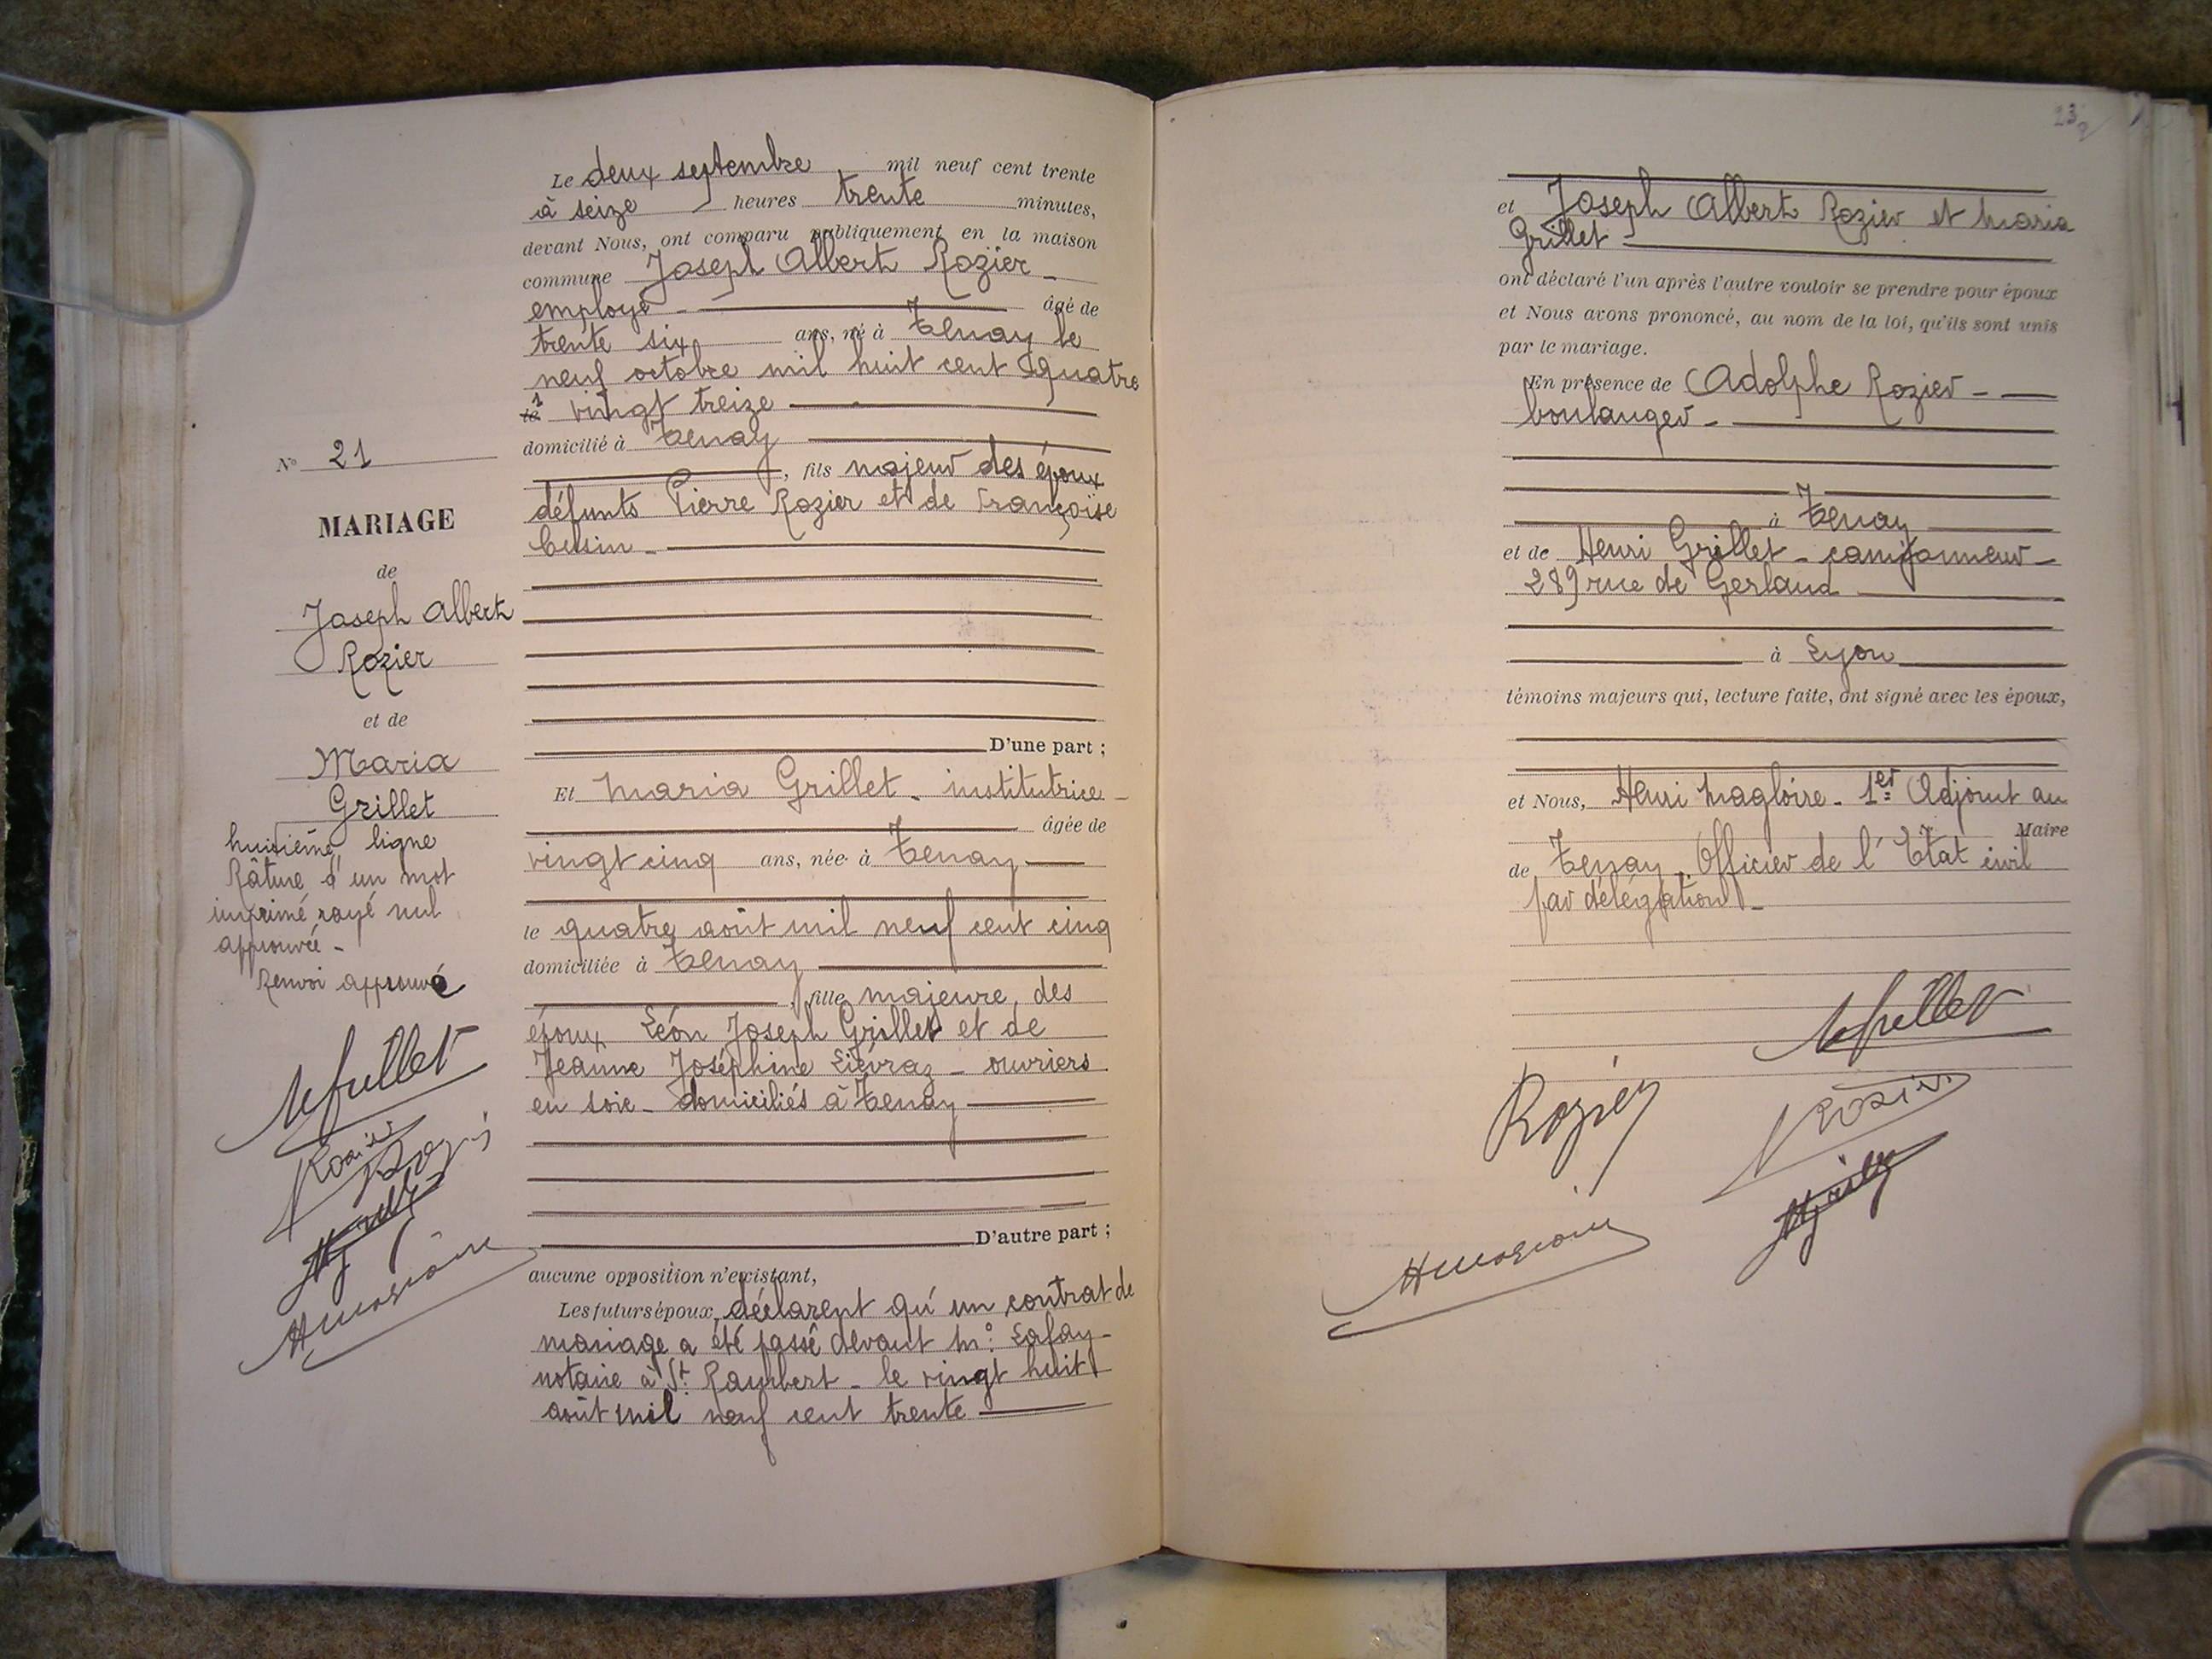 Le deux septembre mil neuf cent trente
à seize heures trente minutes,
devant Nous, ont comparu publiquement en la maison
commune Joseph Albert Rozier
employé âgé de
trente six ans, né à Tenay le
neuf octobre mil huit cent quatre
vingt treize
domicilié à Tenay
, fils majeur des époux
défunts Pierre Rozier et de Françoise
Cusin
D'une part ;
Et Maria Grillet - institutrice -
âgée de
vingt cinq ans, née à Tenay
le quatre août mil neuf cent cinq
domiciliée à Tenay
, fille majeure des
époux Léon Joseph Grillet et de
Jeanne Joséphine Liévraz - ouvriers
en soie - domiciliés à Tenay
D'autre part ;
aucune opposition n'existant,
Les futurs époux déclarent qu'un contrat de
mariage a été passé devant Me Lafay -
notaire à St Rambert - le vingt huit
août mil neuf cent trente
N° 21
MARIAGE
de
Joseph Albert
Rozier
et de
Maria
Grillet
huitième ligne
Râture d'un mot
imprimé rayé nul
approuvée -
Renvoi approuvé
Rozier
23
et Joseph Albert Rozier et Maria
Grillet
ont déclaré l'un après l'autre vouloir se prendre pour époux
et Nous avons prononcé, au nom de la loi, qu'ils sont unis
par le mariage.
En présence de Adolphe Rozier -
boulanger -
à Tenay
et de Henri Grillet - camionneur -
289 rue de Gerland
à Lyon
témoins majeurs qui, lecture faite, ont signé avec les époux,
et Nous, Henri Magloire - 1er Adjoint au
Maire
de Tenay Officier de l'Etat civil
par délégation -
Rozier
Rozier